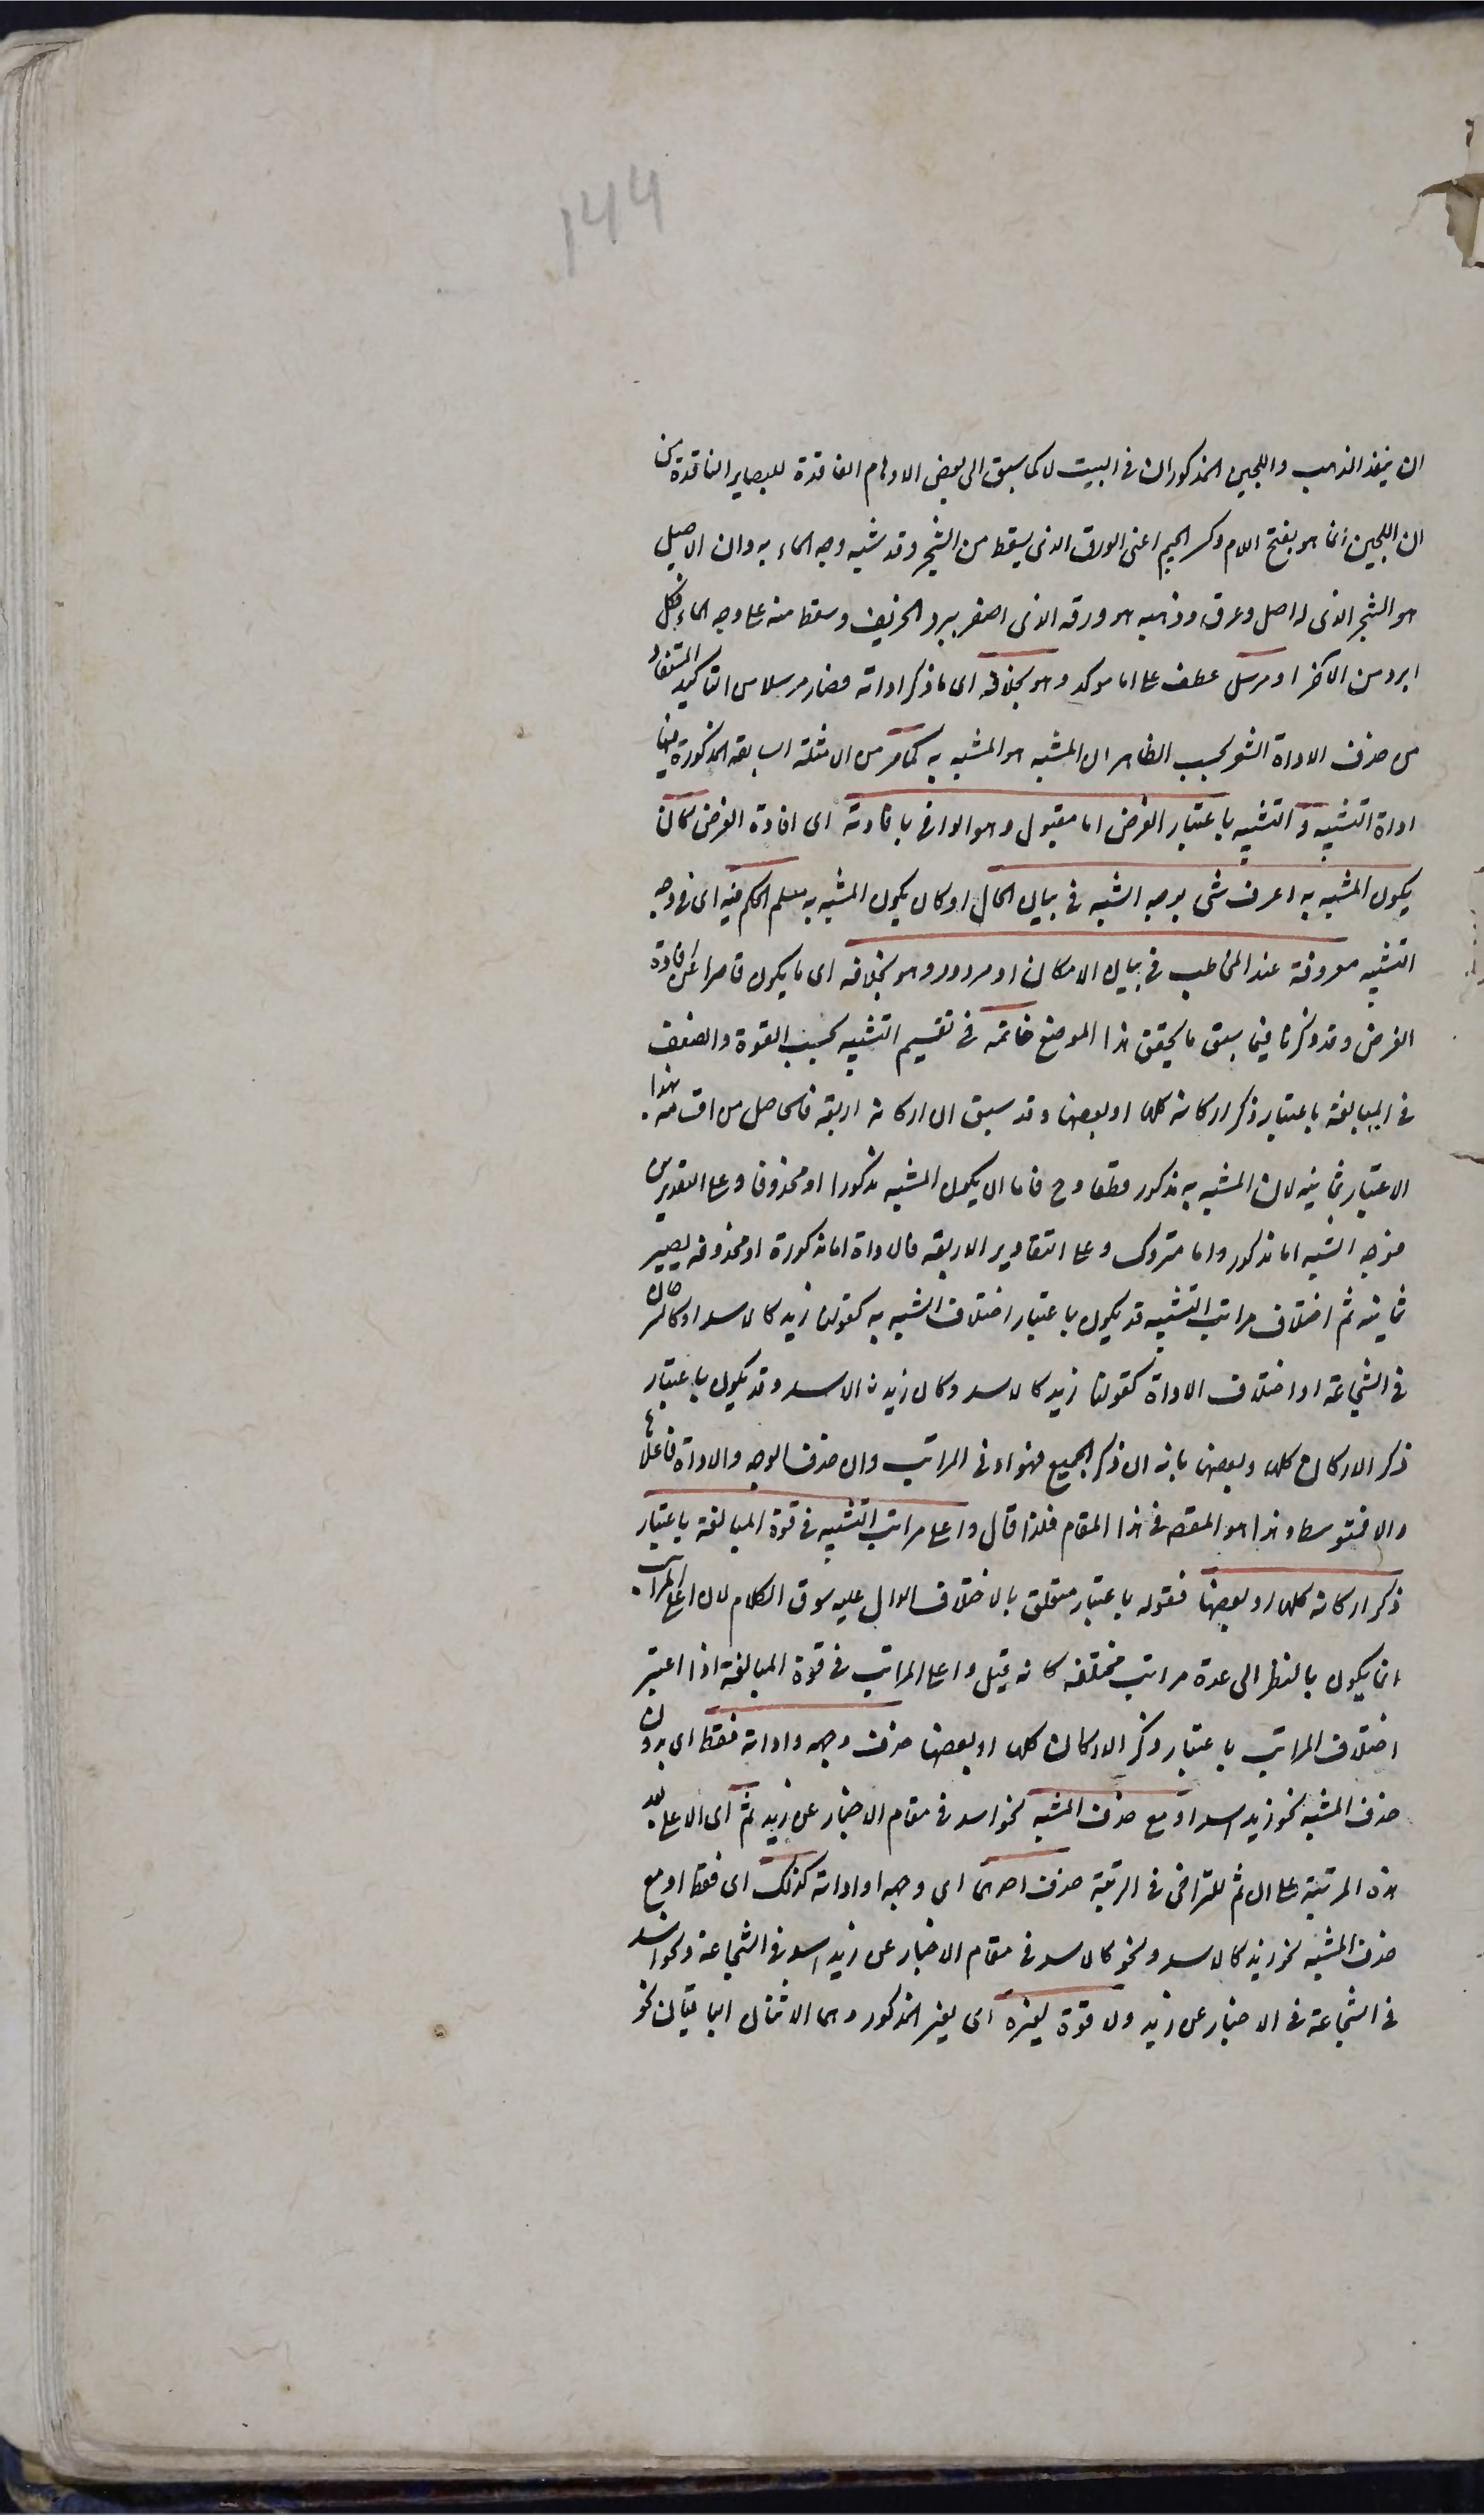 144
ان ينفذ الذهب واللجين المذكوران فى البيت لا كما سبق الى بعض الاوهام الفاقدة للبصاير الناقدة من
ان اللجين انما هو بفتح اللام وكسر الجيم اعنى الورق الذى يسقط من الشجر وقد شبه وجه الماء به وان الاصيل
هو الشجر الذى له اصل وعرق وذهبه هو ورقه الذى اصفر ببرد الخريف وسقط منه على وجه الماء فكل
ابرد من الآخر او مرسل عطف على اما موكد وهو بخلافه اى ما ذكر اداته فصار مرسلا من التاكيد المستفاد
من حذف الاداة المشعر بحسب الظاهر ان المشبه هو المشبه به كما مر من الامثلة السابقة المذكورة فيها
اداة التشبيه و التشبيه باعتبار الغرض اما مقبول وهو الوافى بافادته اى افادة الغرض كان
يكون المشبه به اعرف شى بوجه الشبه فى بيان الحال او كان يكون المشبه به مسلم الحكم فيه اى فى وجه
التشبيه معروفة عند المخاطب فى بيان الامكان او مردود وهو بخلافه اى ما يكون قاصرا عن افادة
الغرض وقد ذكرنا فيما سبق ما يحقق هذا الموضع خاتمه فى تقسيم التشبيه بحسب القوة والضعف
فى المبالغة باعتبار ذكر اركانه كلها او بعضها وقد سبق ان اركانه اربعة فالحاصل من اقسامه بهذا
الاعتبار ثمانية لان المشبه به مذكور قطعا وح فاما ان يكون المشبه مذكورا او محذوفا وعلى التقديرين
فوجه الشبه اما مذكور واما متروك وعلى التقادير الاربعة فالاداة اما مذكورة او محذوفه يصير
ثمانية ثم اختلاف مراتب التشبيه قد يكون باعتبار اختلاف المشبه به كقولنا زيد كالاسد او كالسرحان
فى الشجاعة او اختلاف الاداة كقولنا زيد كالاسد وكان زيدا الاسد وقد يكون باعتبار
ذكر الاركان كلها وبعضها بانه ان ذكر الجميع فهو ادنى المراتب وان حذف الوجه والاداة فاعلاها
والا فمتوسط وهذا هو المقصود فى هذا المقام فلذا قال واعلى مراتب التشبيه فى قوة المبالغة باعتبار
ذكر اركانه كلها او بعضها فقوله باعتبار متعلق بالاختلاف الدال عليه سوق الكلام لان اعلى المراتب
انما يكون بالنظر الى عدة مراتب مختلفه كانه قيل واعلى المراتب فى قوة المبالغة اذا اعتبر
اختلاف المراتب باعتبار ذكر الاركان كلها او بعضها حذف وجهه واداته فقط اى بدون
حذف المشبه نحو زيد اسد او مع حذف المشبه نحو اسد فى مقام الاخبار عن زيد ثم اى الاعلى بعد
هذه المرتبة على ان ثم للتراخى فى الرتبة حذف احدهما اى وجهه او اداته كذلك اى فقط او مع
حذف المشبه نحو زيد كالاسد ونحو كالاسد فى مقام الاخبار عن زيد اسد فى الشجاعة ونحو اسد
فى الشجاعة فى الاخبار عن زيد ولا قوة لغيره اى لغير المذكور وهما الاثنان الباقيان نحو